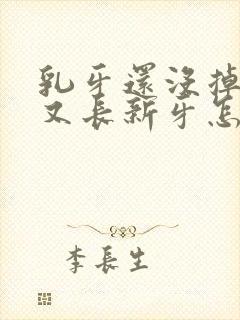 乳牙還沒掉
又長新牙怎
李長生